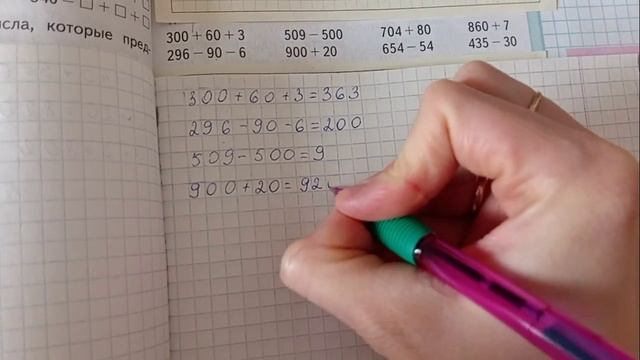 − □ + □ + □
исла, которые пред-
300 + 60 + 3 509 − 500 704 + 80 860 + 7
296 − 90 − 6 900 + 20 654 − 54 435 − 30
300 + 60 + 3 = 363
296 − 90 − 6 = 200
509 − 500 = 9
900 + 20 = 92